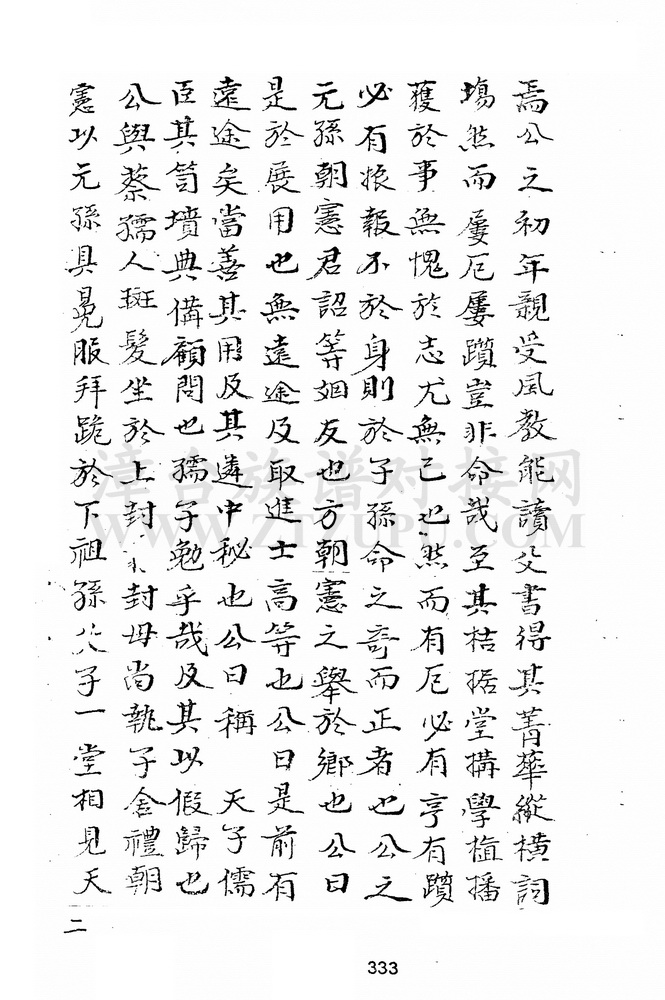 焉公之初年親受風教能讀父書得其菁華縱橫詞
塲然而屢厄屢躓豈非命哉至其拮据堂搆學植播
穫於事無愧於志尤無己也然而有厄必有亨有躓
必有振報不於身則於子孫命之奇而正者也公之
元孫朝憲君詔等姻友也方朝憲之舉於鄉也公曰
是於展用也無遠途及取進士高等也公曰是前有
遠途矣當善其用及其遴中秘也公曰稱 天子儒
臣其笥墳典備顧問也孺子勉乎哉及其以假歸也
公與蔡孺人斑髮坐於上封 封母尚執子舍禮朝
憲以元孫具冕服拜跪於下祖孫父子一堂相見天
二
333
漳台族谱对接网
WWW.ZTZUPU.COM